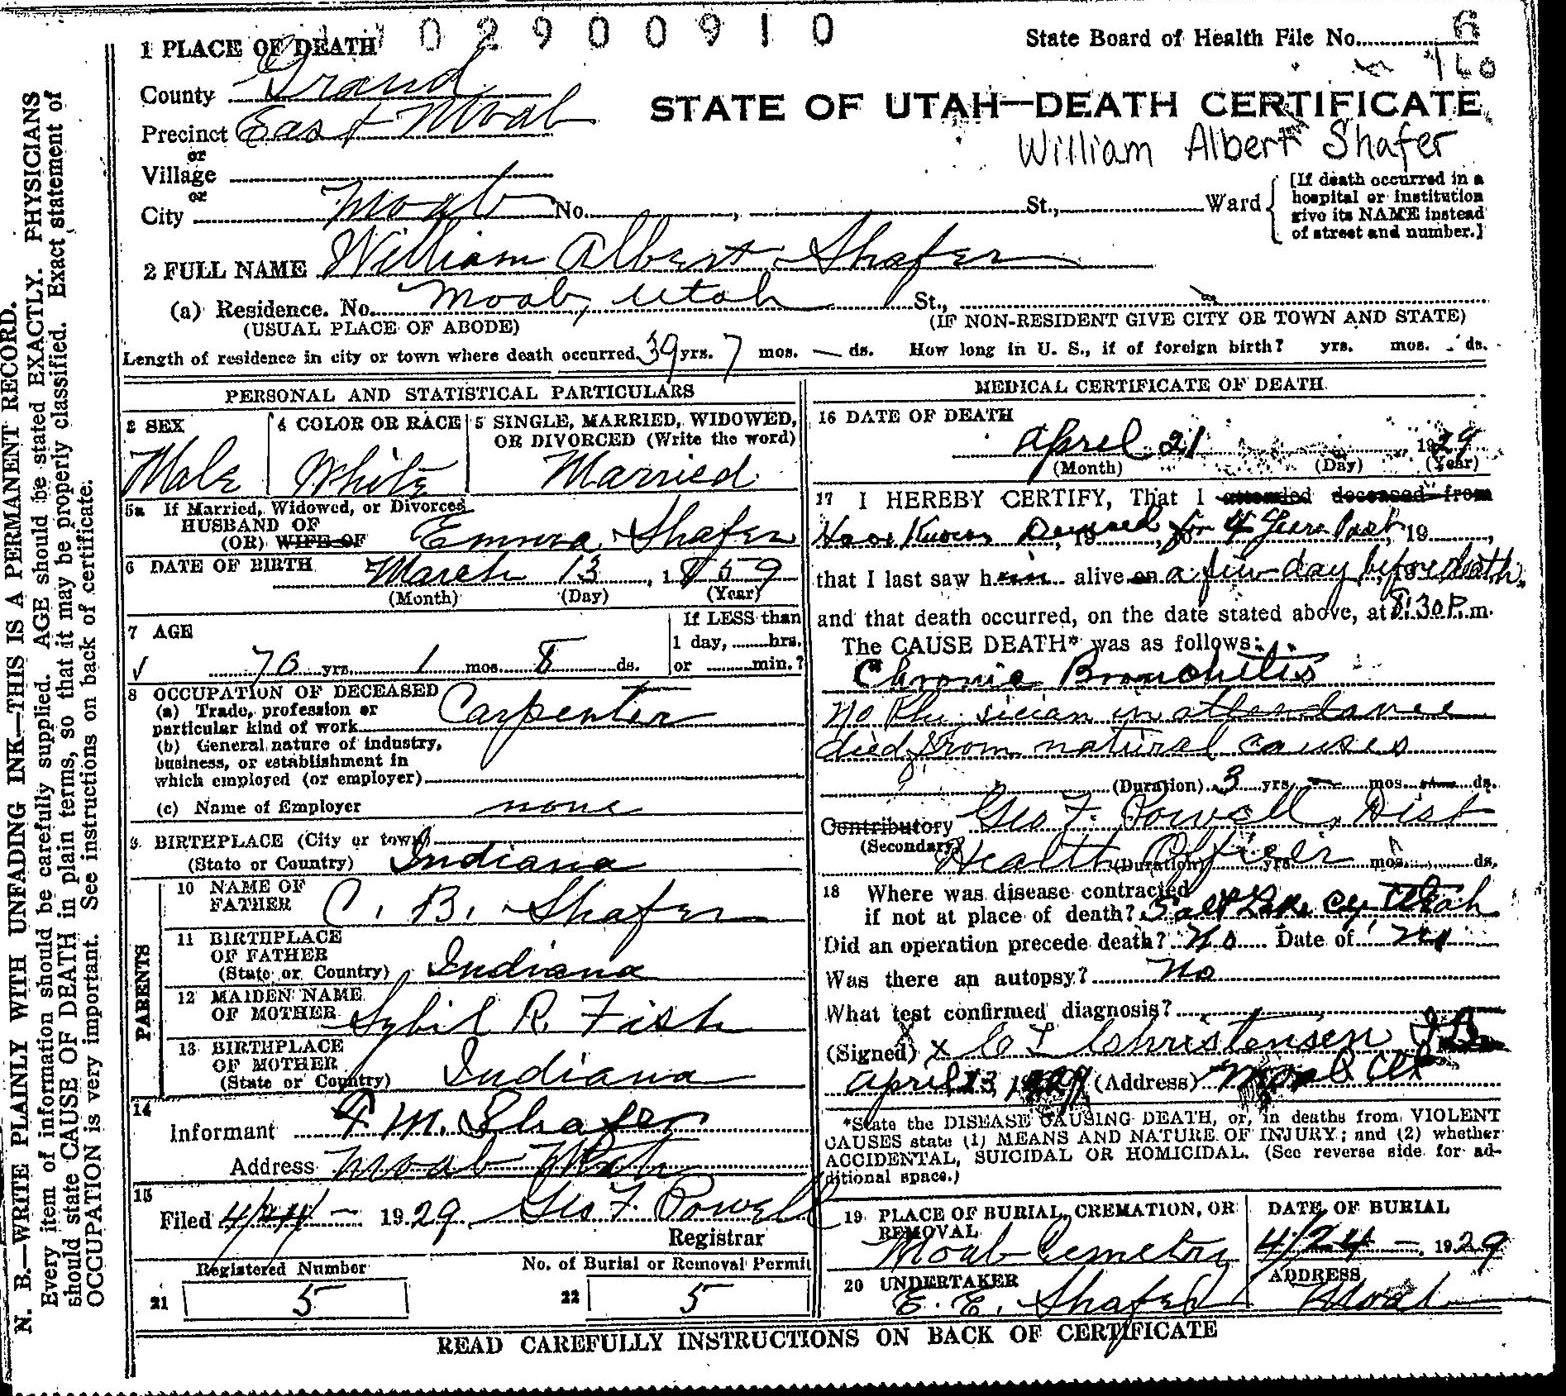 02900910
1 PLACE OF DEATH
State Board of Health File No. 6
160
County Grand
STATE OF UTAH—DEATH CERTIFICATE
Precinct East Moab
William Albert Shafer
or
Village
or
City Moab No. , St., Ward
[If death occurred in a
hospital or institution
give its NAME instead
of street and number.]
2 FULL NAME William Albert Shafer
(a) Residence. No. Moab, Utah St.,
(USUAL PLACE OF ABODE) (IF NON-RESIDENT GIVE CITY OR TOWN AND STATE)
Length of residence in city or town where death occurred 39 yrs. 7 mos. — ds. How long in U. S., if of foreign birth? yrs. mos. ds.
PERSONAL AND STATISTICAL PARTICULARS
3 SEX
Male
4 COLOR OR RACE
White
5 SINGLE, MARRIED, WIDOWED,
OR DIVORCED (Write the word)
Married
5a If Married, Widowed, or Divorced
HUSBAND OF
(OR) WIFE OF Emma Shafer
6 DATE OF BIRTH March 13, 1859
(Month) (Day) (Year)
7 AGE
70 yrs. 1 mos. 8 ds.
If LESS than
1 day, hrs.
or min.?
8 OCCUPATION OF DECEASED
(a) Trade, profession or
particular kind of work Carpenter
(b) General nature of industry,
business, or establishment in
which employed (or employer)
(c) Name of Employer none
9 BIRTHPLACE (City or town)
(State or Country) Indiana
PARENTS
10 NAME OF
FATHER C. B. Shafer
11 BIRTHPLACE
OF FATHER
(State or Country) Indiana
12 MAIDEN NAME
OF MOTHER Sybil R. Fish
13 BIRTHPLACE
OF MOTHER
(State or Country) Indiana
14
Informant F M. Shafer
Address Moab Utah
15
Filed 4/24 — 1929 Geo F. Powell
Registrar
Registered Number
21 5
No. of Burial or Removal Permit
22 5
MEDICAL CERTIFICATE OF DEATH
16 DATE OF DEATH
April 21 1929
(Month) (Day) (Year)
17 I HEREBY CERTIFY, That I attended deceased from
Have Known Deceased, 19 for 4 Years Past, 19 ,
that I last saw him alive on a few day before death.
and that death occurred, on the date stated above, at 8:30 P. m.
The CAUSE DEATH* was as follows:
Chronic Bronchitis
No Phy sician in attendance
died from natural causes
(Duration) 3 yrs. — mos. — ds.
Contributory Geo F. Powell, Dist
(Secondary) Health Officer
(Duration) yrs. mos. ds.
18 Where was disease contracted
if not at place of death? Salt Lake Cy Utah
Did an operation precede death? No Date of no
Was there an autopsy? No
What test confirmed diagnosis?
(Signed) x C L Christensen
April 23, 1929 (Address) Moab Ut
*State the DISEASE CAUSING DEATH, or, in deaths from VIOLENT
CAUSES state (1) MEANS AND NATURE OF INJURY; and (2) whether
ACCIDENTAL, SUICIDAL OR HOMICIDAL. (See reverse side for ad-
ditional space.)
19 PLACE OF BURIAL, CREMATION, OR
REMOVAL
Moab Cemetery
DATE OF BURIAL
4/24 — 1929
20 UNDERTAKER
E. E. Shafer
ADDRESS
Moab
READ CAREFULLY INSTRUCTIONS ON BACK OF CERTIFICATE
N. B.—WRITE PLAINLY WITH UNFADING INK—THIS IS A PERMANENT RECORD.
Every item of information should be carefully supplied. AGE should be stated EXACTLY. PHYSICIANS
should state CAUSE OF DEATH in plain terms, so that it may be properly classified. Exact statement of
OCCUPATION is very important. See instructions on back of certificate.